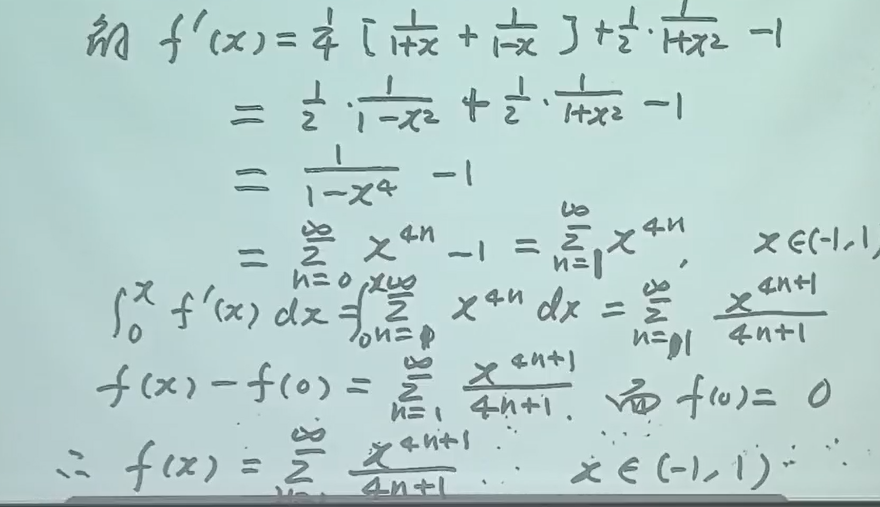 解 f'(x) = 1/4 [ 1/(1+x) + 1/(1-x) ] + 1/2 · 1/(1+x²) - 1
= 1/2 · 1/(1-x²) + 1/2 · 1/(1+x²) - 1
= 1/(1-x⁴) - 1
= ∑_{n=0}^{∞} x^{4n} - 1 = ∑_{n=1}^{∞} x^{4n}, x∈(-1,1)
∫₀ˣ f'(x) dx = ∫₀ˣ ∑_{n=1}^{∞} x^{4n} dx = ∑_{n=1}^{∞} x^{4n+1}/(4n+1)
f(x) - f(0) = ∑_{n=1}^{∞} x^{4n+1}/(4n+1). 而 f(0) = 0
∴ f(x) = ∑^{∞} x^{4n+1}/(4n+1) x ∈ (-1, 1)